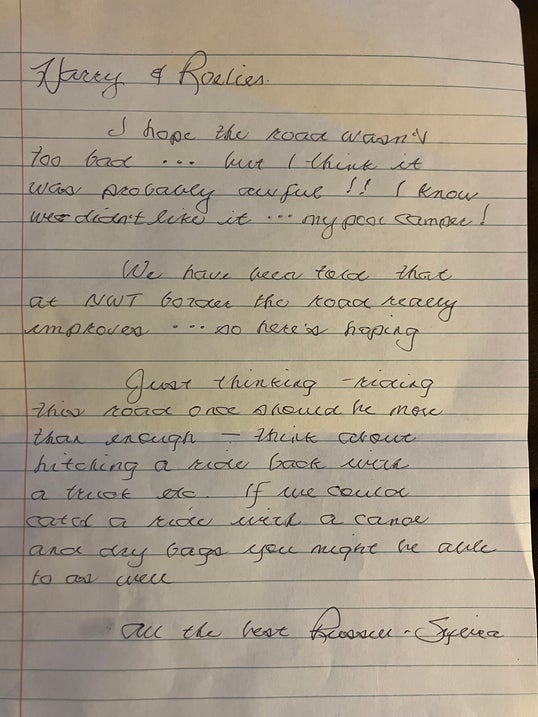 Harry & Roelies.
I hope the road wasn't
too bad ... but I think it
was probably awful !! I know
we didn't like it ... my poor camper!
We have been told that
at NWT border the road really
improves ... so here's hoping
Just thinking - riding
this road once should be more
than enough - think about
hitching a ride back with
a truck etc. If we could
catch a ride with a canoe
and dry bags you might be able
to as well
All the best Russell - Sylvia